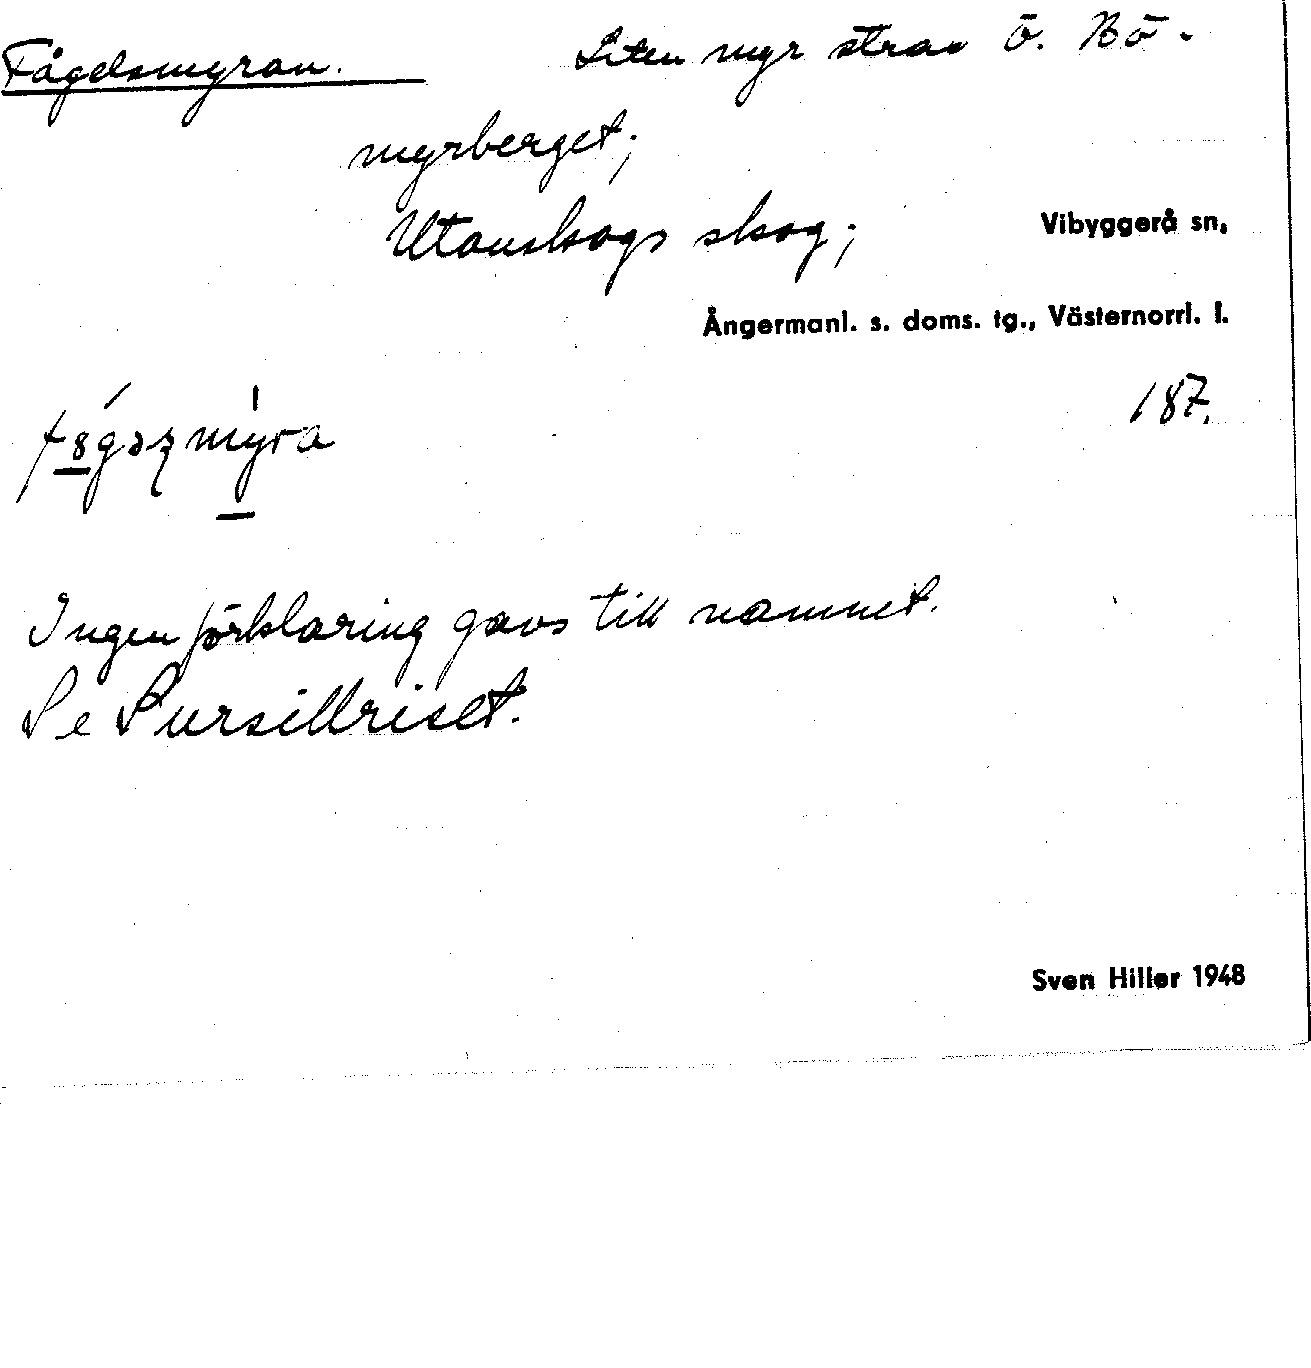 Fågelsmyran. Liten myr strax Ö. Bö-
myrberget;
Utanskogs skog; Vibyggerå sn,
Ångermanl. s. doms. tg., Västernorrl. l.
187.
Ingen förklaring gavs till namnet.
Se Sursillriset.
Sven Hiller 1948